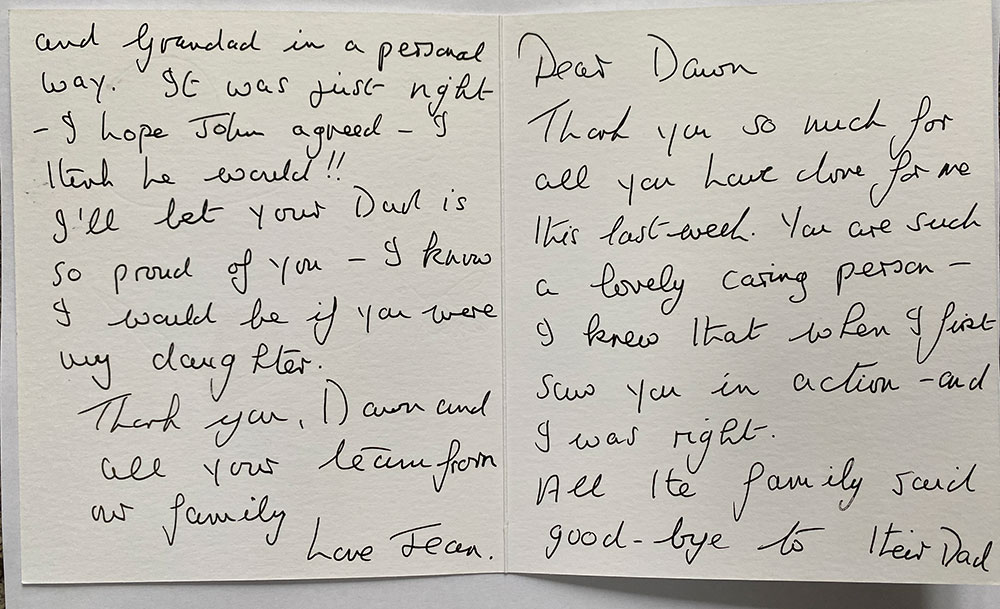 Dear Dawn
Thank you so much for
all you have done for me
this last week. You are such
a lovely caring person -
I knew that when I first
saw you in action - and
I was right.
All the family said
good-bye to their Dad
and Grandad in a personal
way. It was just right
- I hope John agreed - I
think he would!!
I'll bet your Dad is
so proud of you - I know
I would be if you were
my daughter.
Thank you, Dawn and
all your team from
our family
Love Jean.